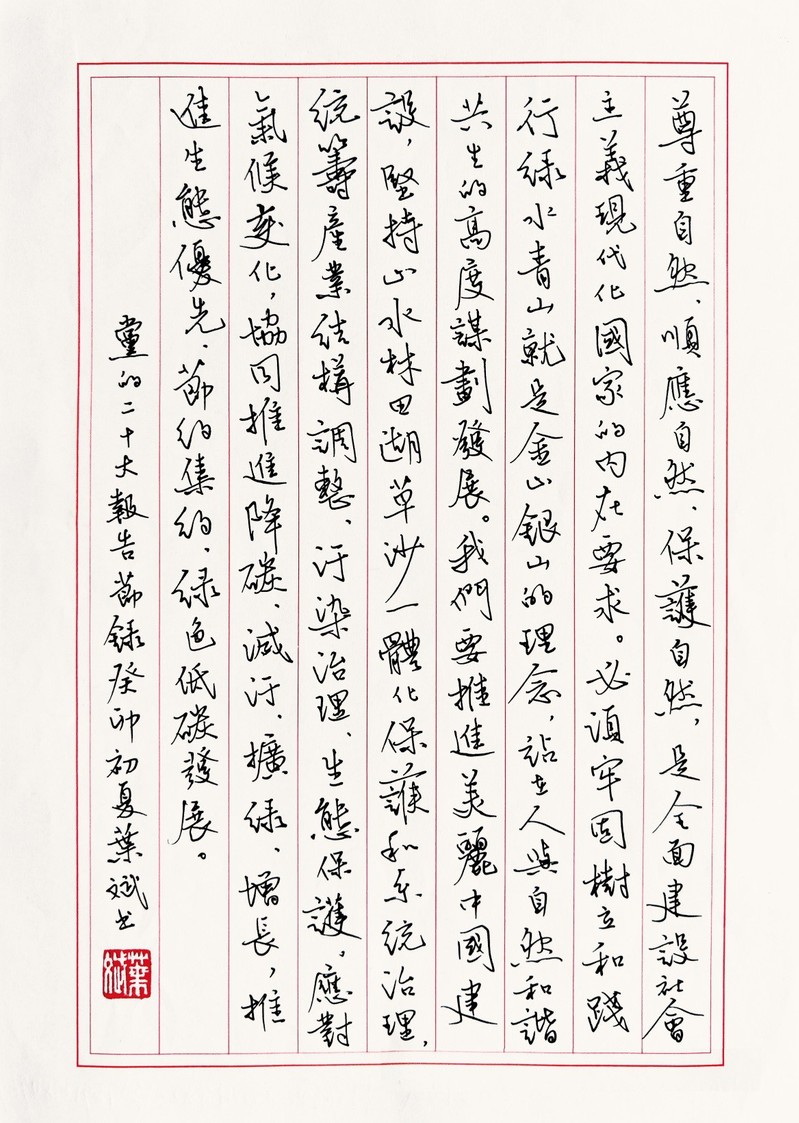 尊重自然、順應自然、保護自然，是全面建設社會
主義現代化國家的内在要求。必須牢固樹立和踐
行绿水青山就是金山銀山的理念，站在人與自然和諧
共生的高度謀劃發展。我們要推進美麗中國建
設，堅持山水林田湖草沙一體化保護和系統治理，
統籌産業结構調整、汙染治理、生態保護。應對
氣候变化，協同推進降碳、減汙、擴绿、增長，推
進生態優先、節约集约、绿色低碳發展。
黨的二十大報告節録癸卯初夏葉斌书
葉斌